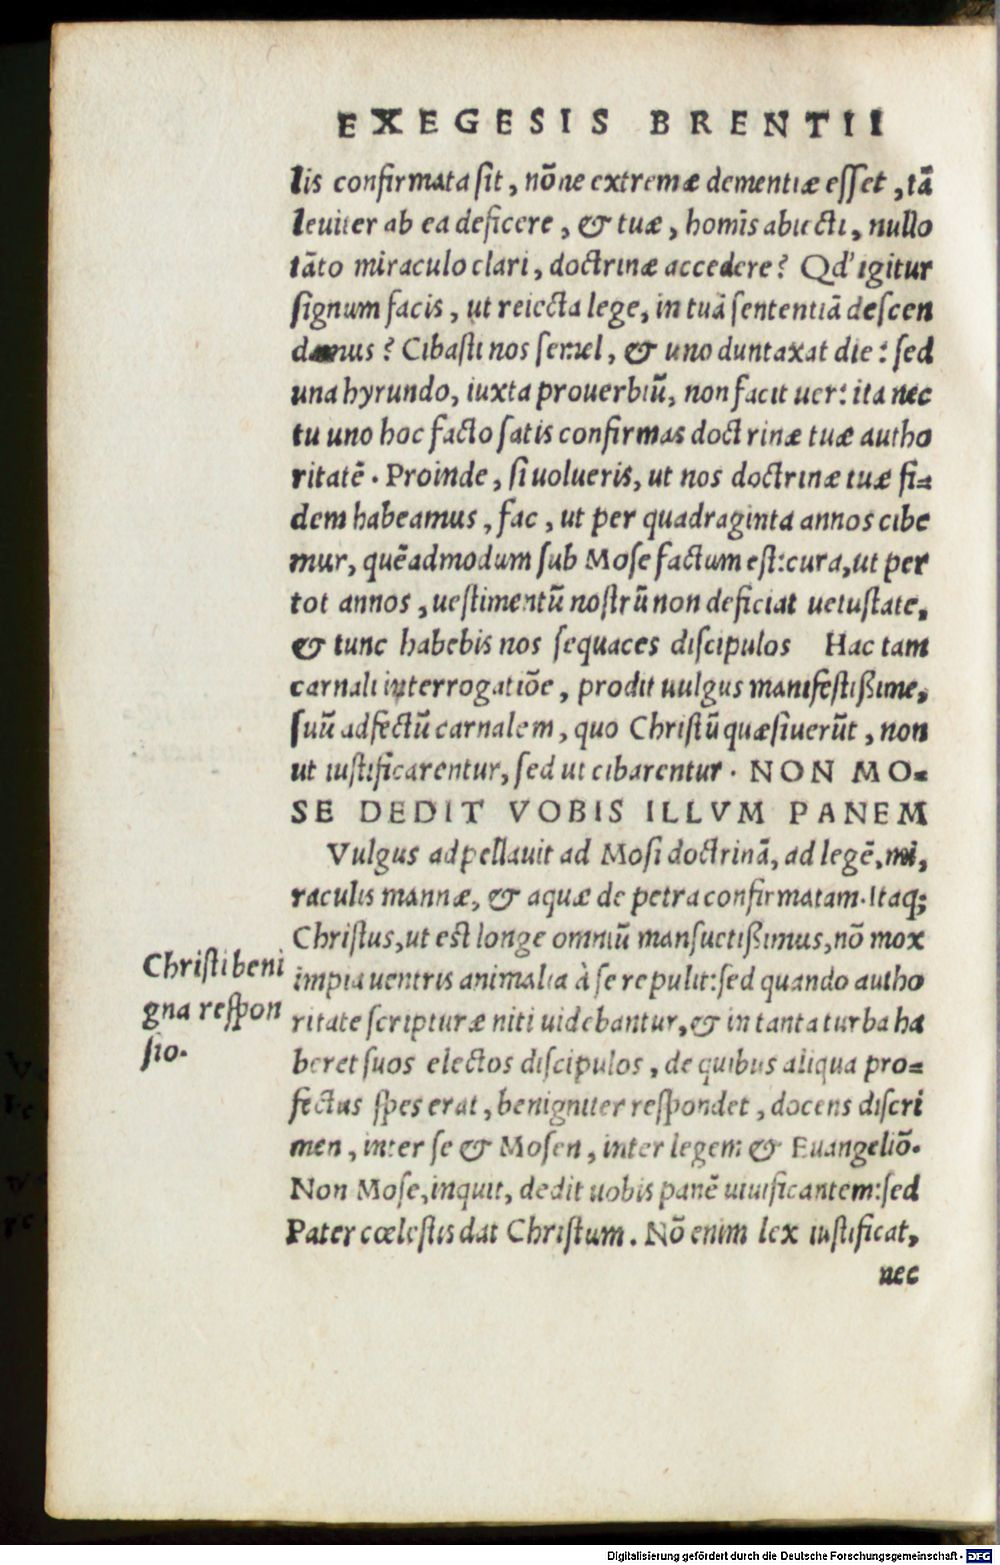 EXEGESIS BRENTII
lis confirmata sit, nõne extremæ dementiæ esset, tã
leuiter ab ea deficere, & tuæ, homĩs abiecti, nullo
tãto miraculo clari, doctrinæ accedere? Qd' igitur
signum facis, ut reiecta lege, in tuã sententiã descen
damus? Cibasti nos semel, & uno duntaxat die: sed
una hyrundo, iuxta prouerbiũ, non facit uer: ita nec
tu uno hoc facto satis confirmas doctrinæ tuæ autho
ritatẽ. Proinde, si uolueris, ut nos doctrinæ tuæ fi=
dem habeamus, fac, ut per quadraginta annos cibe
mur, quẽadmodum sub Mose factum est: cura, ut per
tot annos, uestimentũ nostrũ non deficiat uetustate,
& tunc habebis nos sequaces discipulos Hac tam
carnali interrogatiõe, prodit uulgus manifestißime,
suũ adfectũ carnalem, quo Christũ quæsiuerũt, non
ut iustificarentur, sed ut cibarentur. NON MO=
SE DEDIT VOBIS ILLVM PANEM
Vulgus adpellauit ad Mosi doctrinã, ad legẽ, mi,
raculis mannæ, & aquæ de petra confirmatam. Itaq;
Christus, ut est longe omniũ mansuetißimus, nõ mox
impia uentris animalia à se repulit: sed quando autho
ritate scripturæ niti uidebantur, & in tanta turba ha
beret suos electos discipulos, de quibus aliqua pro=
fectus spes erat, benigniter respondet, docens discri
men, inter se & Mosen, inter legem & Euangeliõ.
Non Mose, inquit, dedit uobis panẽ uiuificantem: sed
Pater cœlestis dat Christum. Nõ enim lex iustificat,
nec
Christi beni
gna respon
sio.
Digitalisierung gefördert durch die Deutsche Forschungsgemeinschaft - DFG